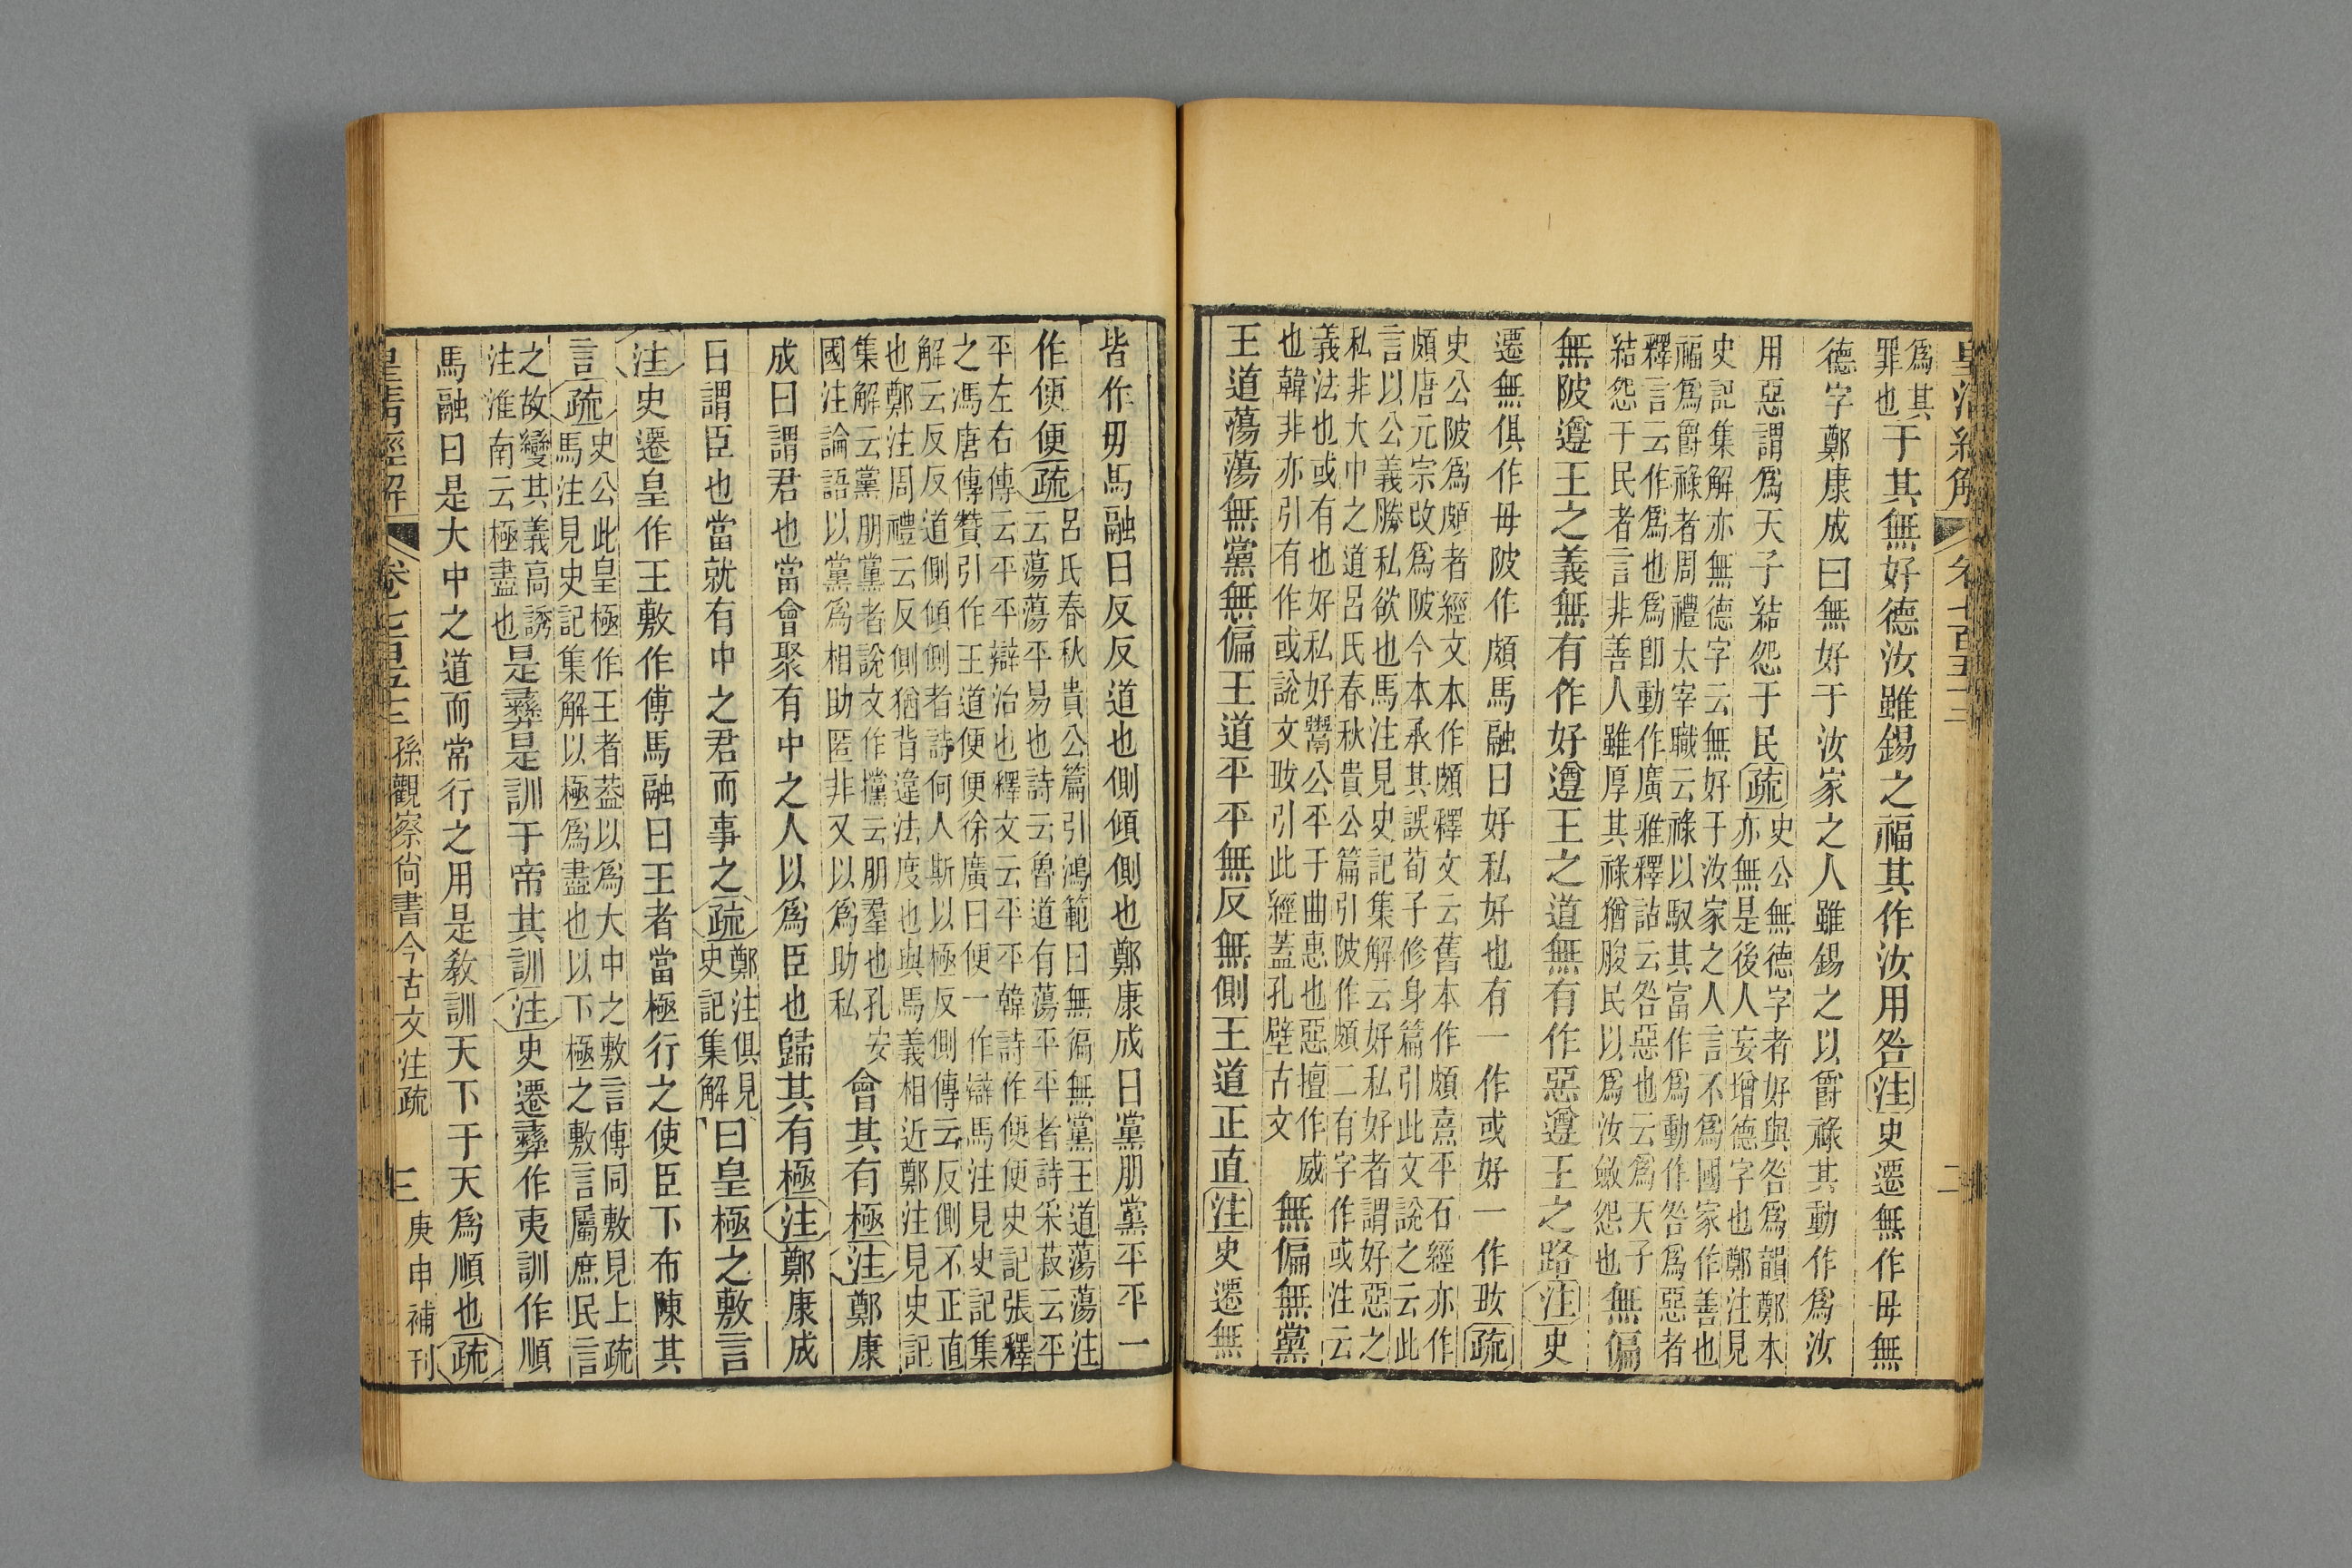 皇清經解 卷七百五十三 二
爲其
罪也
于其無好德汝雖錫之福其作汝用咎注史遷無作毋無
德字鄭康成曰無好于汝家之人雖錫之以爵祿其動作爲汝
用惡謂爲天子結怨于民疏
史公無德字者好與咎爲韻鄭本
亦無是後人妄增德字也鄭注見
史記集解亦無德字云無好于汝家之人言不爲國家作善也
福爲爵祿者周禮太宰職云祿以馭其富作爲動作咎爲惡者
釋言云作爲也爲卽動作廣雅釋詁云咎惡也云爲天子
結怨于民者言非善人雖厚其祿猶朘民以爲汝斂怨也
無偏
無陂遵王之義無有作好遵王之道無有作惡遵王之路注史
遷無俱作毋陂作頗馬融曰好私好也有一作或好一作㚥疏
史公陂爲頗者經文本作頗釋文云舊本作頗熹平石經亦作
頗唐元宗改爲陂今本承其誤荀子修身篇引此文說之云此
言以公義勝私欲也馬注見史記集解云好私好者謂好惡之
私非大中之道呂氏春秋貴公篇引陂作頗二有字作或注云
義法也或有也好私好鬻公平于曲惠也惡擅作威
也韓非亦引有作或說文㚥引此經蓋孔壁古文
無偏無黨
王道蕩蕩無黨無偏王道平平無反無側王道正直注史遷無
皆作毋馬融曰反反道也側傾側也鄭康成曰黨朋黨平平一
作便便疏
呂氏春秋貴公篇引鴻範曰無徧無黨王道蕩蕩注
云蕩蕩平易也詩云魯道有蕩平平者詩采菽云平
平左右傳云平平辯治也釋文云平平韓詩作便便史記張釋
之馮唐傳贊引作王道便便徐廣曰便一作辯馬注見史記集
解云反反道側傾側者詩何人斯以極反側傳云反側不正直
也鄭注周禮云反側猶背違法度也與馬義相近鄭注見史記
集解云黨朋黨者說文作攩云朋羣也孔安
國注論語以黨爲相助匿非又以爲助私
會其有極注鄭康
成曰謂君也當會聚有中之人以爲臣也歸其有極注鄭康成
曰謂臣也當就有中之君而事之疏
鄭注俱見
史記集解
曰皇極之敷言
注史遷皇作王敷作傅馬融曰王者當極行之使臣下布陳其
言疏
史公此皇極作王者葢以爲大中之敷言傳同敷見上疏
馬注見史記集解以極爲盡也以下極之敷言屬庶民言
之故變其義高誘
注淮南云極盡也
是彝是訓于帝其訓注史遷彝作夷訓作順
馬融曰是大中之道而常行之用是敎訓天下于天爲順也疏
皇清經解 卷七百五十三 孫觀察尙書今古文注疏 三 庚申補刊